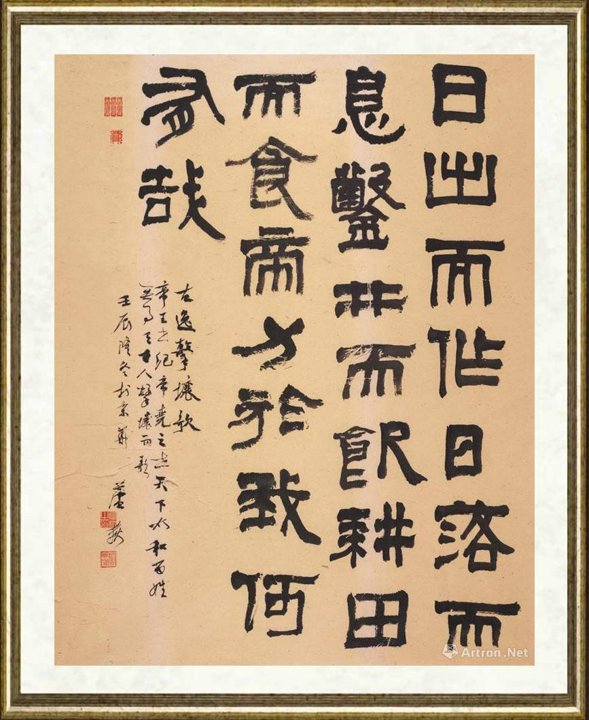 日出而作日落而
息鑿井而飲耕田
而食帝力於我何
有哉
古逸擊壤歌
帝王世纪帝堯之世天下太和百姓
人擊壤而歌
壬辰隆冬於京華
Artron.Net